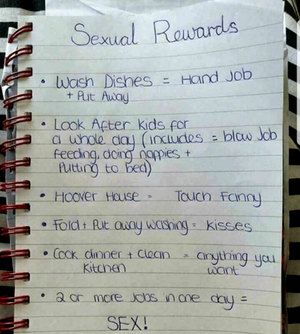 Sexual Rewards
• Wash Dishes = Hand Job
+ Put Away
• Look After Kids for
a whole day (includes = blow Job
feeding, doing nappies +
Putting to bed)
• Hoover House = Touch Fanny
• Fold + Put away washing = Kisses
• Cook dinner + Clean = anything you
Kitchen want
• 2 or more Jobs in one day =
SEX!